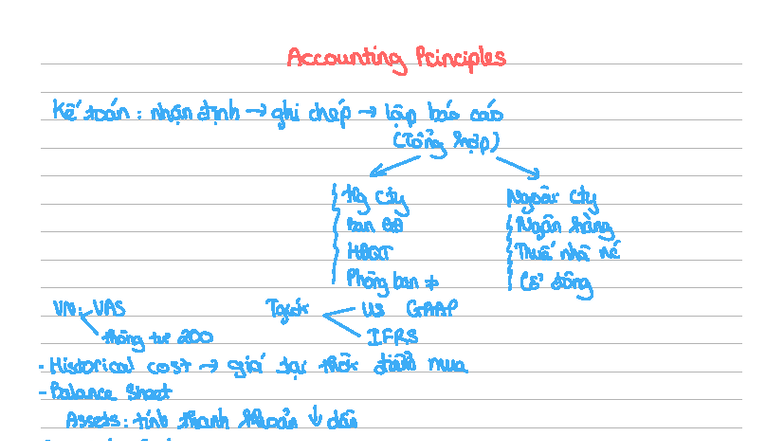 Accounting Principles
Kế toán : nhận định → ghi chép → lập báo cáo
(Tổng hợp)
Trg Cty Ngoài Cty
Ban GĐ Ngân hàng
HĐQT Thuế nhà nc
Phòng ban ≠ Cổ đông
VN: VAS Tg quốc tế US GAAP
thông tư 200 IFRS
- Historical cost → giá tại thời điểm mua
- Balance Sheet
Assets : tính thanh khoản ↓ dần